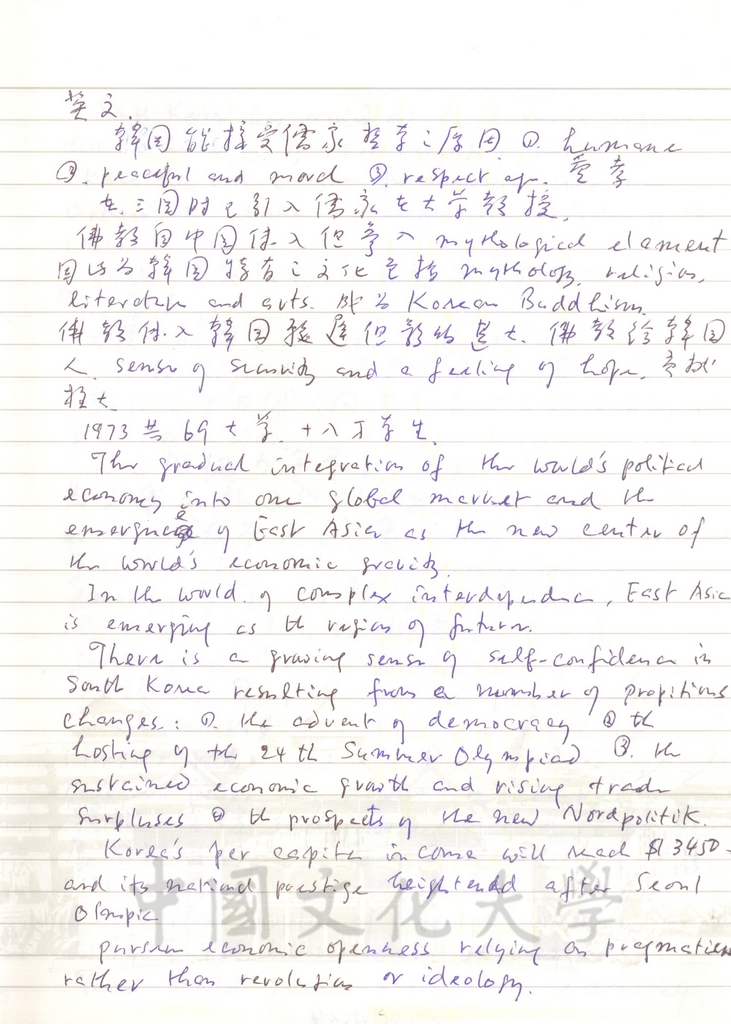 英文.
韓国能接受儒家哲学之原因 ①. humane
②. peaceful and moral ③. respect age. 忠孝
在三国時已引入儒家在大学教授.
佛教自中国传入但掺入 mythological element
因此为韓国特有之文化包括 mythology, religion,
literature and arts. 成为 Korean Buddhism.
佛教传入韓国较遲但影响甚大. 佛教给韓国
人 sense of security and a feeling of hope.
1973 共 69 大学. 十八万学生.
The gradual integration of the world's political
economy into one global market and the
emergence of East Asia as the new center of
the world's economic gravity.
In the world of complex interdependence, East Asia
is emerging as the region of future.
There is a growing sense of self-confidence in
South Korea resulting from a number of propitious
changes: ①. the advent of democracy ② the
hosting of the 24th Summer Olympiad ③. the
sustained economic growth and rising trade
surpluses ④ the prospects of the new Nordpolitik.
Korea's per capita income will reach $3450-
and its national prestige heightened after Seoul
Olmpic
pursue economic openness relying on pragmatism
rather than revolution or ideology.
中國文化大學